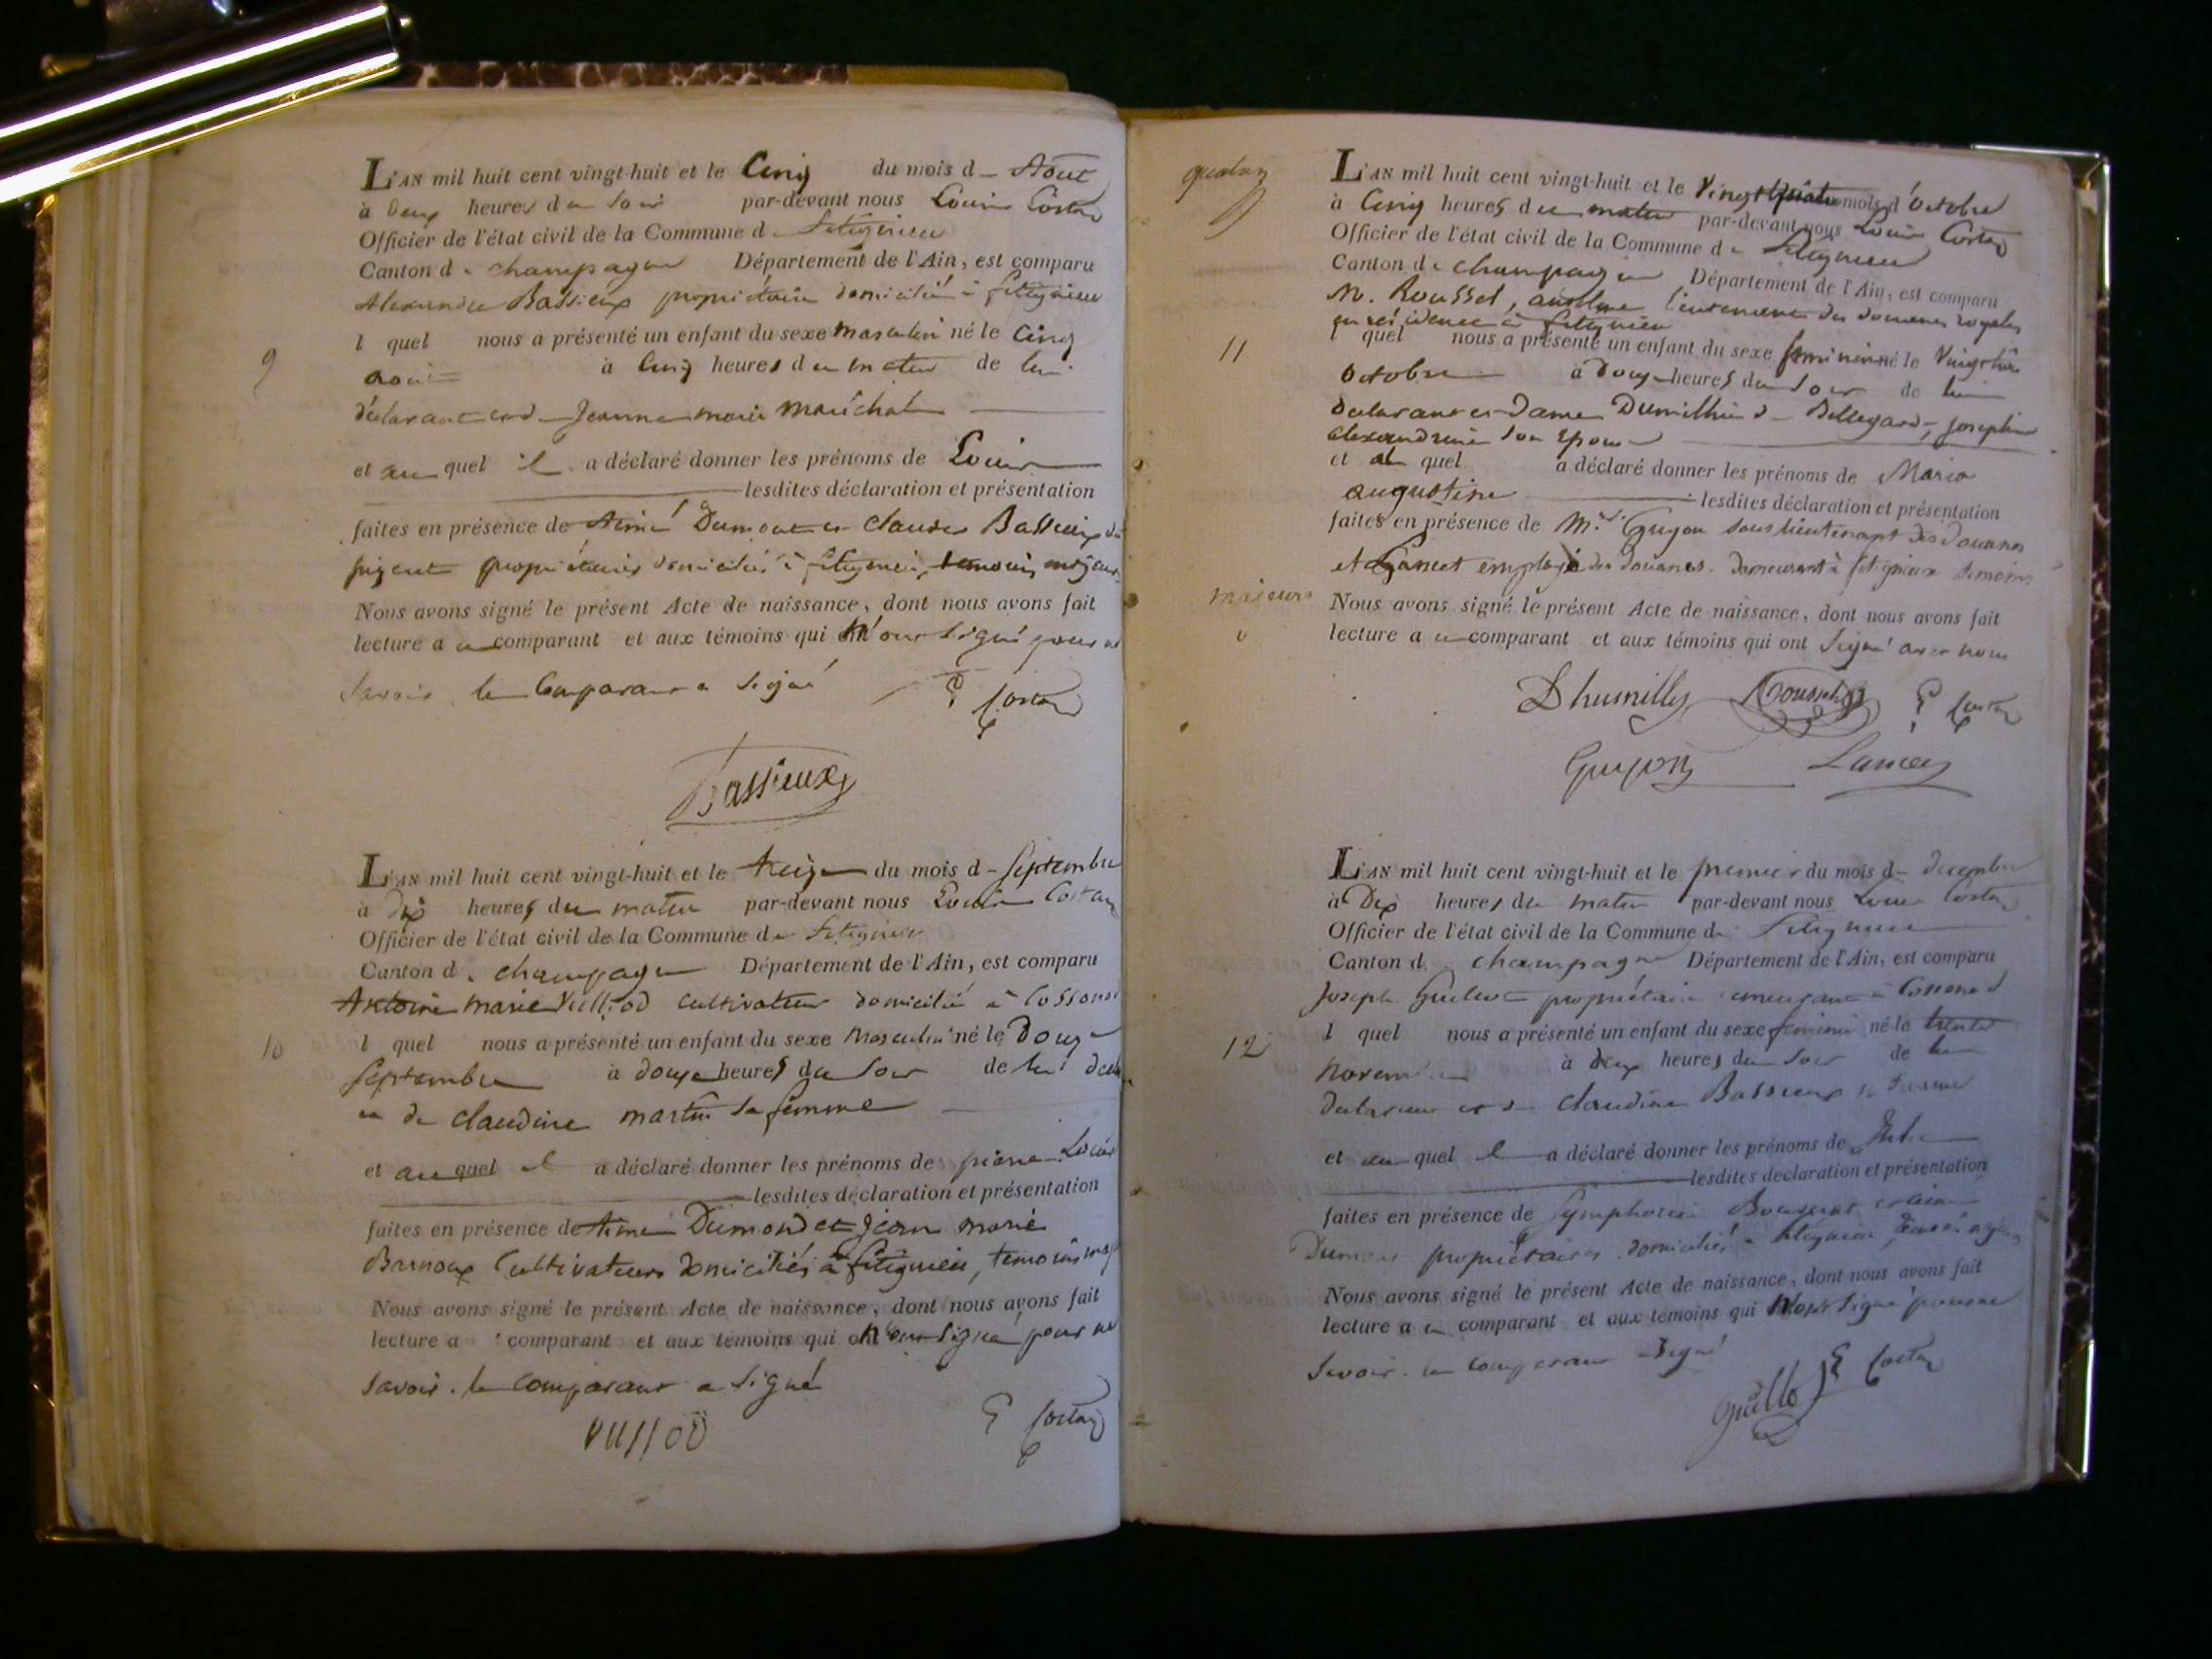 L'AN mil huit cent vingt-huit et le Cinq du mois d Aout
à deux heures du soir par-devant nous Louis Costaz
Officier de l'état civil de la Commune de
Canton de champagne Département de l'Ain, est comparu
Alexandre Bassieux propriétaire domicilié à
l quel nous a présenté un enfant du sexe masculin né le Cinq
9
août à Cinq heures du matin de lui
déclarant et de Jeanne marie maréchal
et au quel il a déclaré donner les prénoms de Louis
lesdites déclaration et présentation
faites en présence de Aimé Dumont et claude Bassieux
propriétaires domiciliés à témoins majeurs
Nous avons signé le présent Acte de naissance, dont nous avons fait
lecture a u comparant et aux témoins qui n'ont signé pour ne
savoir le Comparant a signé
Costaz
Bassieux
L'AN mil huit cent vingt-huit et le treize du mois de Septembre
à dix heures du matin par-devant nous Louis Costaz
Officier de l'état civil de la Commune de
Canton de champagne Département de l'Ain, est comparu
Antoine marie Vuillod cultivateur domicilié à
10
l quel nous a présenté un enfant du sexe masculin né le Douze
Septembre à douze heures du soir de lui
et de claudine martin sa femme
et au quel il a déclaré donner les prénoms de pierre Louis
lesdites déclaration et présentation
faites en présence de Aimé Dumond et jean marie
Cultivateurs domiciliés à témoins
Nous avons signé le présent Acte de naissance, dont nous avons fait
lecture a comparant et aux témoins qui ont n'ont signé pour ne
savoir. le comparant a signé
Costaz
L'AN mil huit cent vingt-huit et le Vingt mois d'octobre
à Cinq heures du matin par-devant nous Louis Costaz
Officier de l'état civil de la Commune de
Canton de champagne Département de l'Ain, est comparu
M. Roussel, anselme lieutenant des douanes royales
en résidence à
11
l quel nous a présenté un enfant du sexe féminin né le
octobre à Douze heures du soir de lui
déclarant et Dame Bellegarde, josephine
alexandrine son épouse
et al quel a déclaré donner les prénoms de Marie
augustine lesdites déclaration et présentation
faites en présence de Mrs. Guyon sous lieutenant des Douanes
et employé des douanes. demeurant à témoins
majeurs
Nous avons signé le présent Acte de naissance, dont nous avons fait
lecture a u comparant et aux témoins qui ont signé avec nous
Dhumilly Roussel Costaz
Guyon Lancey
L'AN mil huit cent vingt-huit et le premier du mois de decembre
à Dix heures du matin par-devant nous Louis Costaz
Officier de l'état civil de la Commune de
Canton d champagne Département de l'Ain, est comparu
Joseph propriétaire demeurant à
12
l quel nous a présenté un enfant du sexe feminin né le trente
novembre à deux heures du soir de lui
déclarant et de claudine Bassieux sa femme
et au quel il a déclaré donner les prénoms de Julie
lesdites déclaration et présentation
faites en présence de Symphorien et
Dumont propriétaires domiciliés à
Nous avons signé le présent Acte de naissance, dont nous avons fait
lecture a u comparant et aux témoins qui n'ont signé pour ne
savoir. le comparant a signé
Costaz